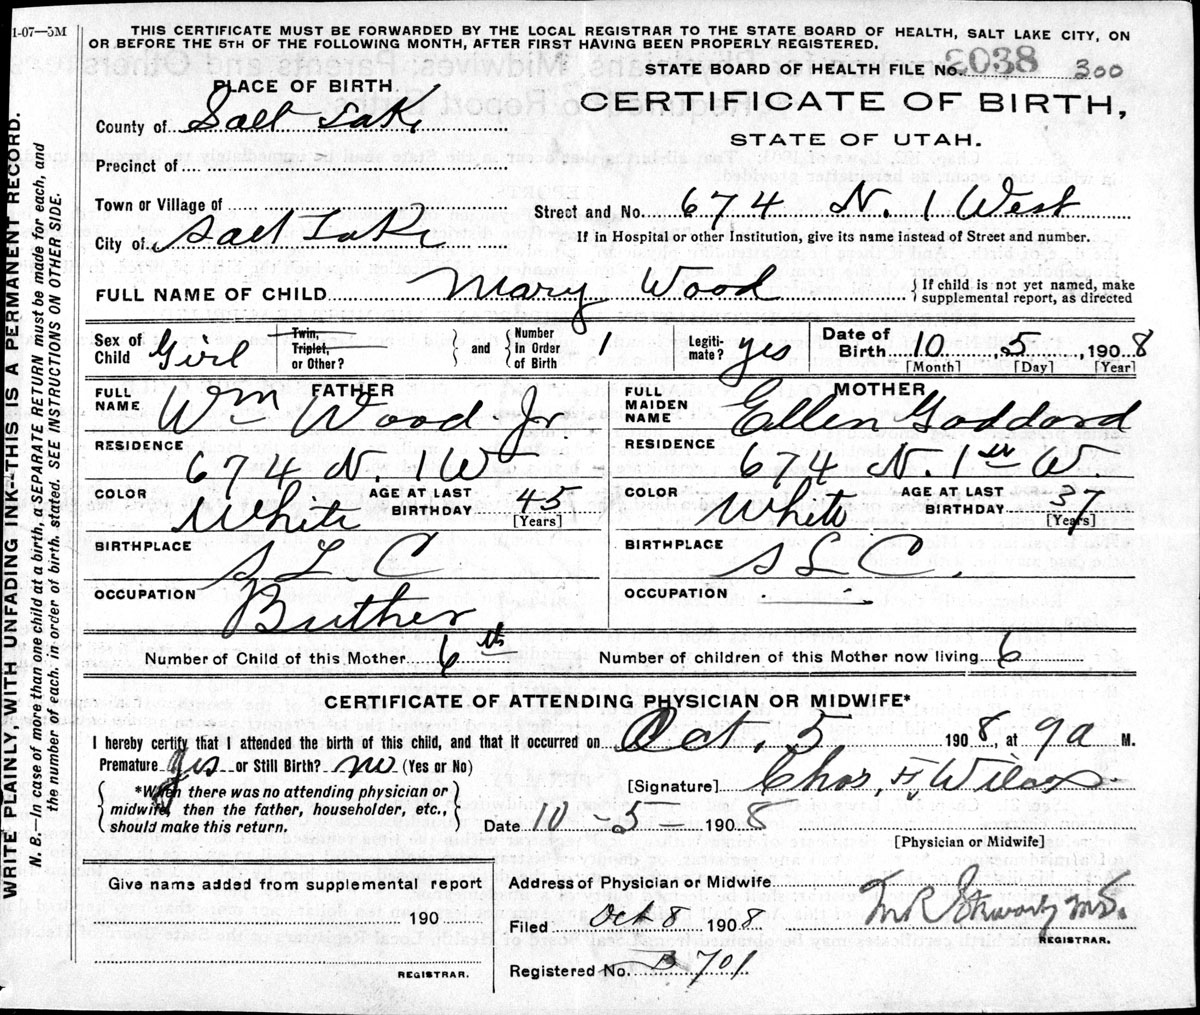 1-07—5M
THIS CERTIFICATE MUST BE FORWARDED BY THE LOCAL REGISTRAR TO THE STATE BOARD OF HEALTH, SALT LAKE CITY, ON
OR BEFORE THE 5TH OF THE FOLLOWING MONTH, AFTER FIRST HAVING BEEN PROPERLY REGISTERED.
STATE BOARD OF HEALTH FILE No. 6038 300
PLACE OF BIRTH.
CERTIFICATE OF BIRTH,
STATE OF UTAH.
County of Salt Lake
Precinct of
Town or Village of
Street and No. 674 N. 1 West
City of Salt Lake
If in Hospital or other Institution, give its name instead of Street and number.
FULL NAME OF CHILD Mary Wood
If child is not yet named, make
supplemental report, as directed
Sex of
Child Girl
Twin,
Triplet,
or Other?
and
Number
In Order
of Birth 1
Legiti-
mate? yes
Date of
Birth 10, 5, 1908
[Month] [Day] [Year]
FATHER
FULL
NAME Wm Wood Jr.
MOTHER
FULL
MAIDEN
NAME Ellen Goddard
RESIDENCE
674 N. 1 W
RESIDENCE
674 N. 1st W
COLOR White
AGE AT LAST
BIRTHDAY 45
[Years]
COLOR White
AGE AT LAST
BIRTHDAY 37
[Years]
BIRTHPLACE
S L C
BIRTHPLACE
S L C.
OCCUPATION
Buther
OCCUPATION
Number of Child of this Mother 6th
Number of children of this Mother now living 6
CERTIFICATE OF ATTENDING PHYSICIAN OR MIDWIFE*
I hereby certify that I attended the birth of this child, and that it occurred on Oct. 5 1908, at 9a M.
Premature yes or Still Birth? no (Yes or No)
*When there was no attending physician or
midwife, then the father, householder, etc.,
should make this return.
[Signature] Chas. F. Wilcox
Date 10-5-1908
[Physician or Midwife]
Give name added from supplemental report
190
REGISTRAR.
Address of Physician or Midwife
Filed Oct 8 1908
REGISTRAR.
Registered No. B 701
WRITE PLAINLY, WITH UNFADING INK—THIS IS A PERMANENT RECORD.
N. B.—In case of more than one child at a birth, a SEPARATE RETURN must be made for each, and
the number of each, in order of birth, stated. SEE INSTRUCTIONS ON OTHER SIDE.